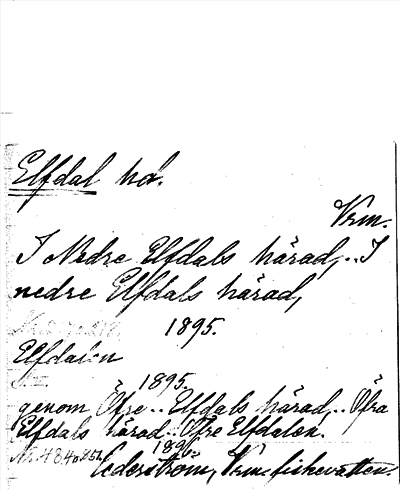 Elfdal hd.
Vrm.
I Nedre Elfdals härad,.. I
nedre Elfdals härad,
1895.
Elfdalen
1895.
genom Öfre.. Elfdals härad,.. Öfra
Elfdals härad.. Öfre Elfdalen.
1896
Cederström, Vrm. fiskevatten.